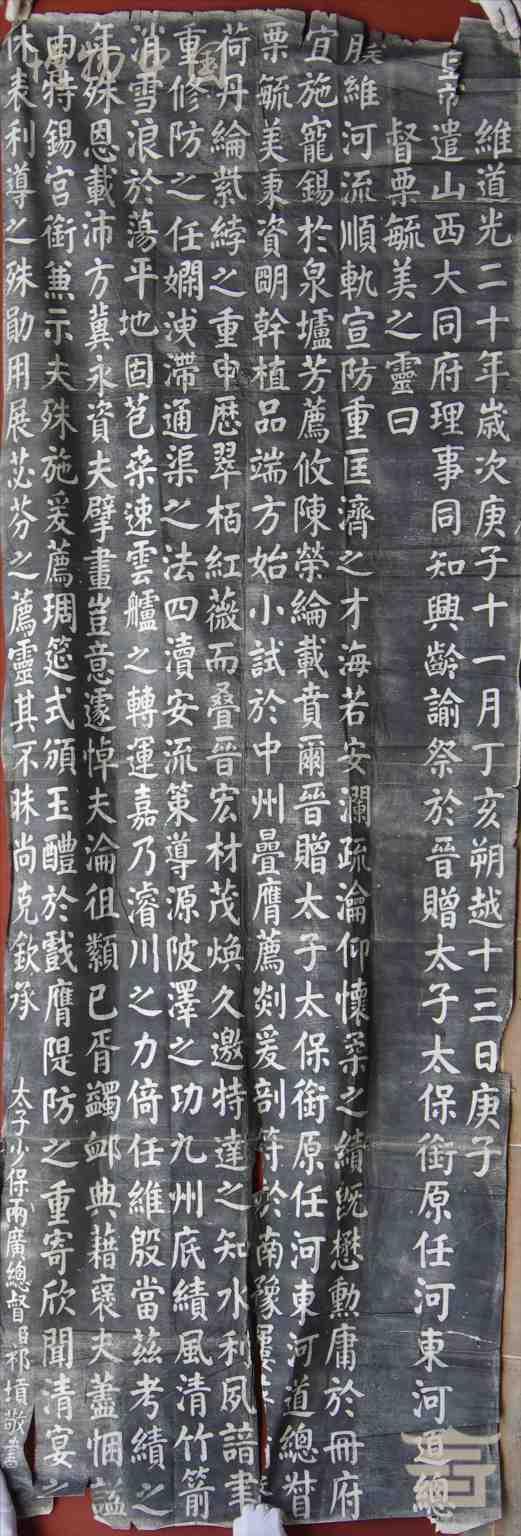 維道光二十年歲次庚子十一月丁亥朔越十三日庚子
皇帝遣山西大同府理事同知興齡諭祭於晉贈太子太保銜原任河東河道總
督栗毓美之靈曰
朕維河流順軌宣防重匡濟之才海若安瀾疏瀹仰懷柔之績旣懋勳庸於冊府
宜施寵錫於泉壚芳薦攸陳榮綸載賁爾晉贈太子太保銜原任河東河道總督
栗毓美秉資明幹植品端方始小試於中州曡膺薦剡爰剖符於南豫
荷丹綸紫綍之重申歴翠栢紅薇而叠晉宏材茂煥久邀特達之知水利夙諳
重修防之任嫻洩滯通渠之法四瀆安流策導源陂澤之功九州底績風清竹箭
消雪浪於蕩平地固苞桒速雲艫之轉運嘉乃濬川之力倚任維殷當茲考績之
年殊恩載沛方冀永資夫擘畫豈意遽悼夫淪徂纇已胥蠲卹典藉褒夫藎悃諡
由特錫宮銜兼示夫殊施爰薦琱筵式頒玉醴於戲膺隄防之重寄欣聞清宴之
休表利導之殊勛用展苾芬之薦靈其不昧尚克欽承
太子少保兩廣總督祁𡎴敬書
中國